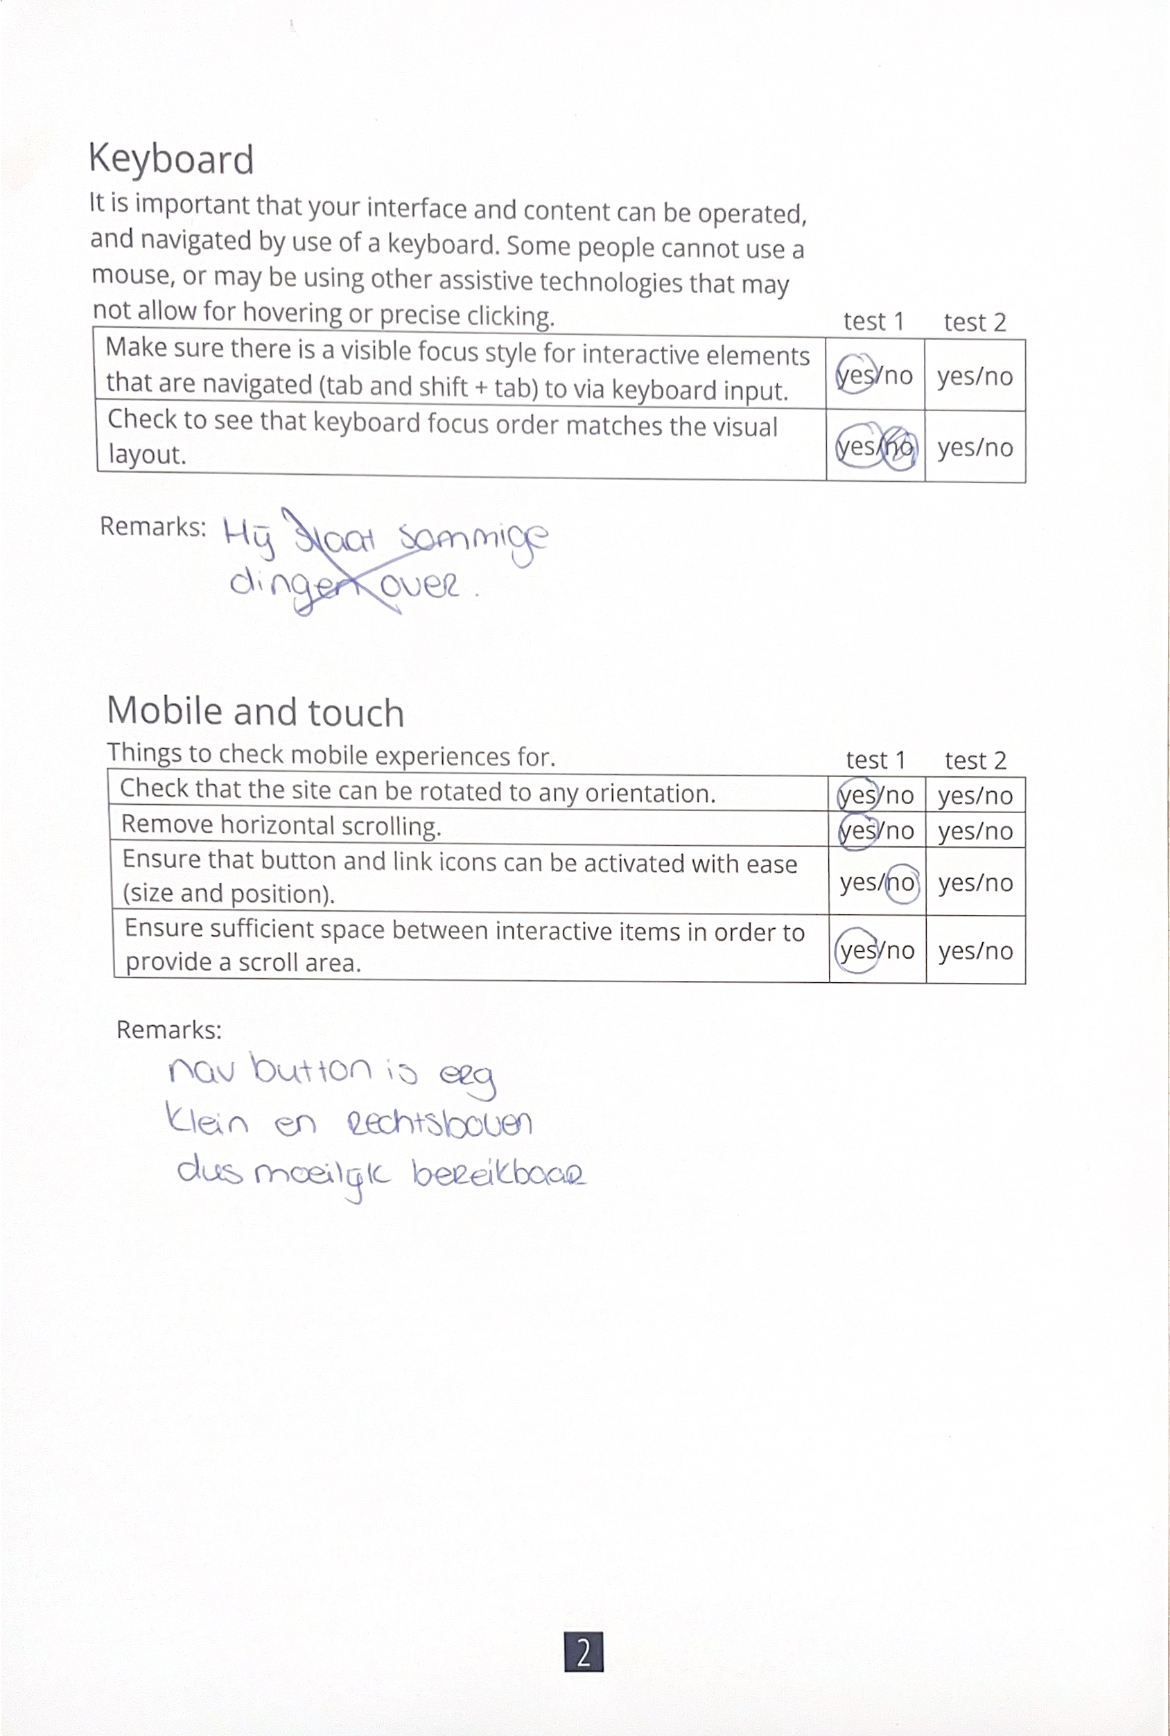 Keyboard
It is important that your interface and content can be operated,
and navigated by use of a keyboard. Some people cannot use a
mouse, or may be using other assistive technologies that may
not allow for hovering or precise clicking. test 1 test 2
Make sure there is a visible focus style for interactive elements
that are navigated (tab and shift + tab) to via keyboard input. yes/no yes/no
Check to see that keyboard focus order matches the visual
layout. yes/no yes/no
Remarks: Hij slaat sommige
dingen over.
Mobile and touch
Things to check mobile experiences for. test 1 test 2
Check that the site can be rotated to any orientation. yes/no yes/no
Remove horizontal scrolling. yes/no yes/no
Ensure that button and link icons can be activated with ease
(size and position). yes/no yes/no
Ensure sufficient space between interactive items in order to
provide a scroll area. yes/no yes/no
Remarks:
nav button is erg
klein en rechtsboven
dus moeilijk bereikbaar
2